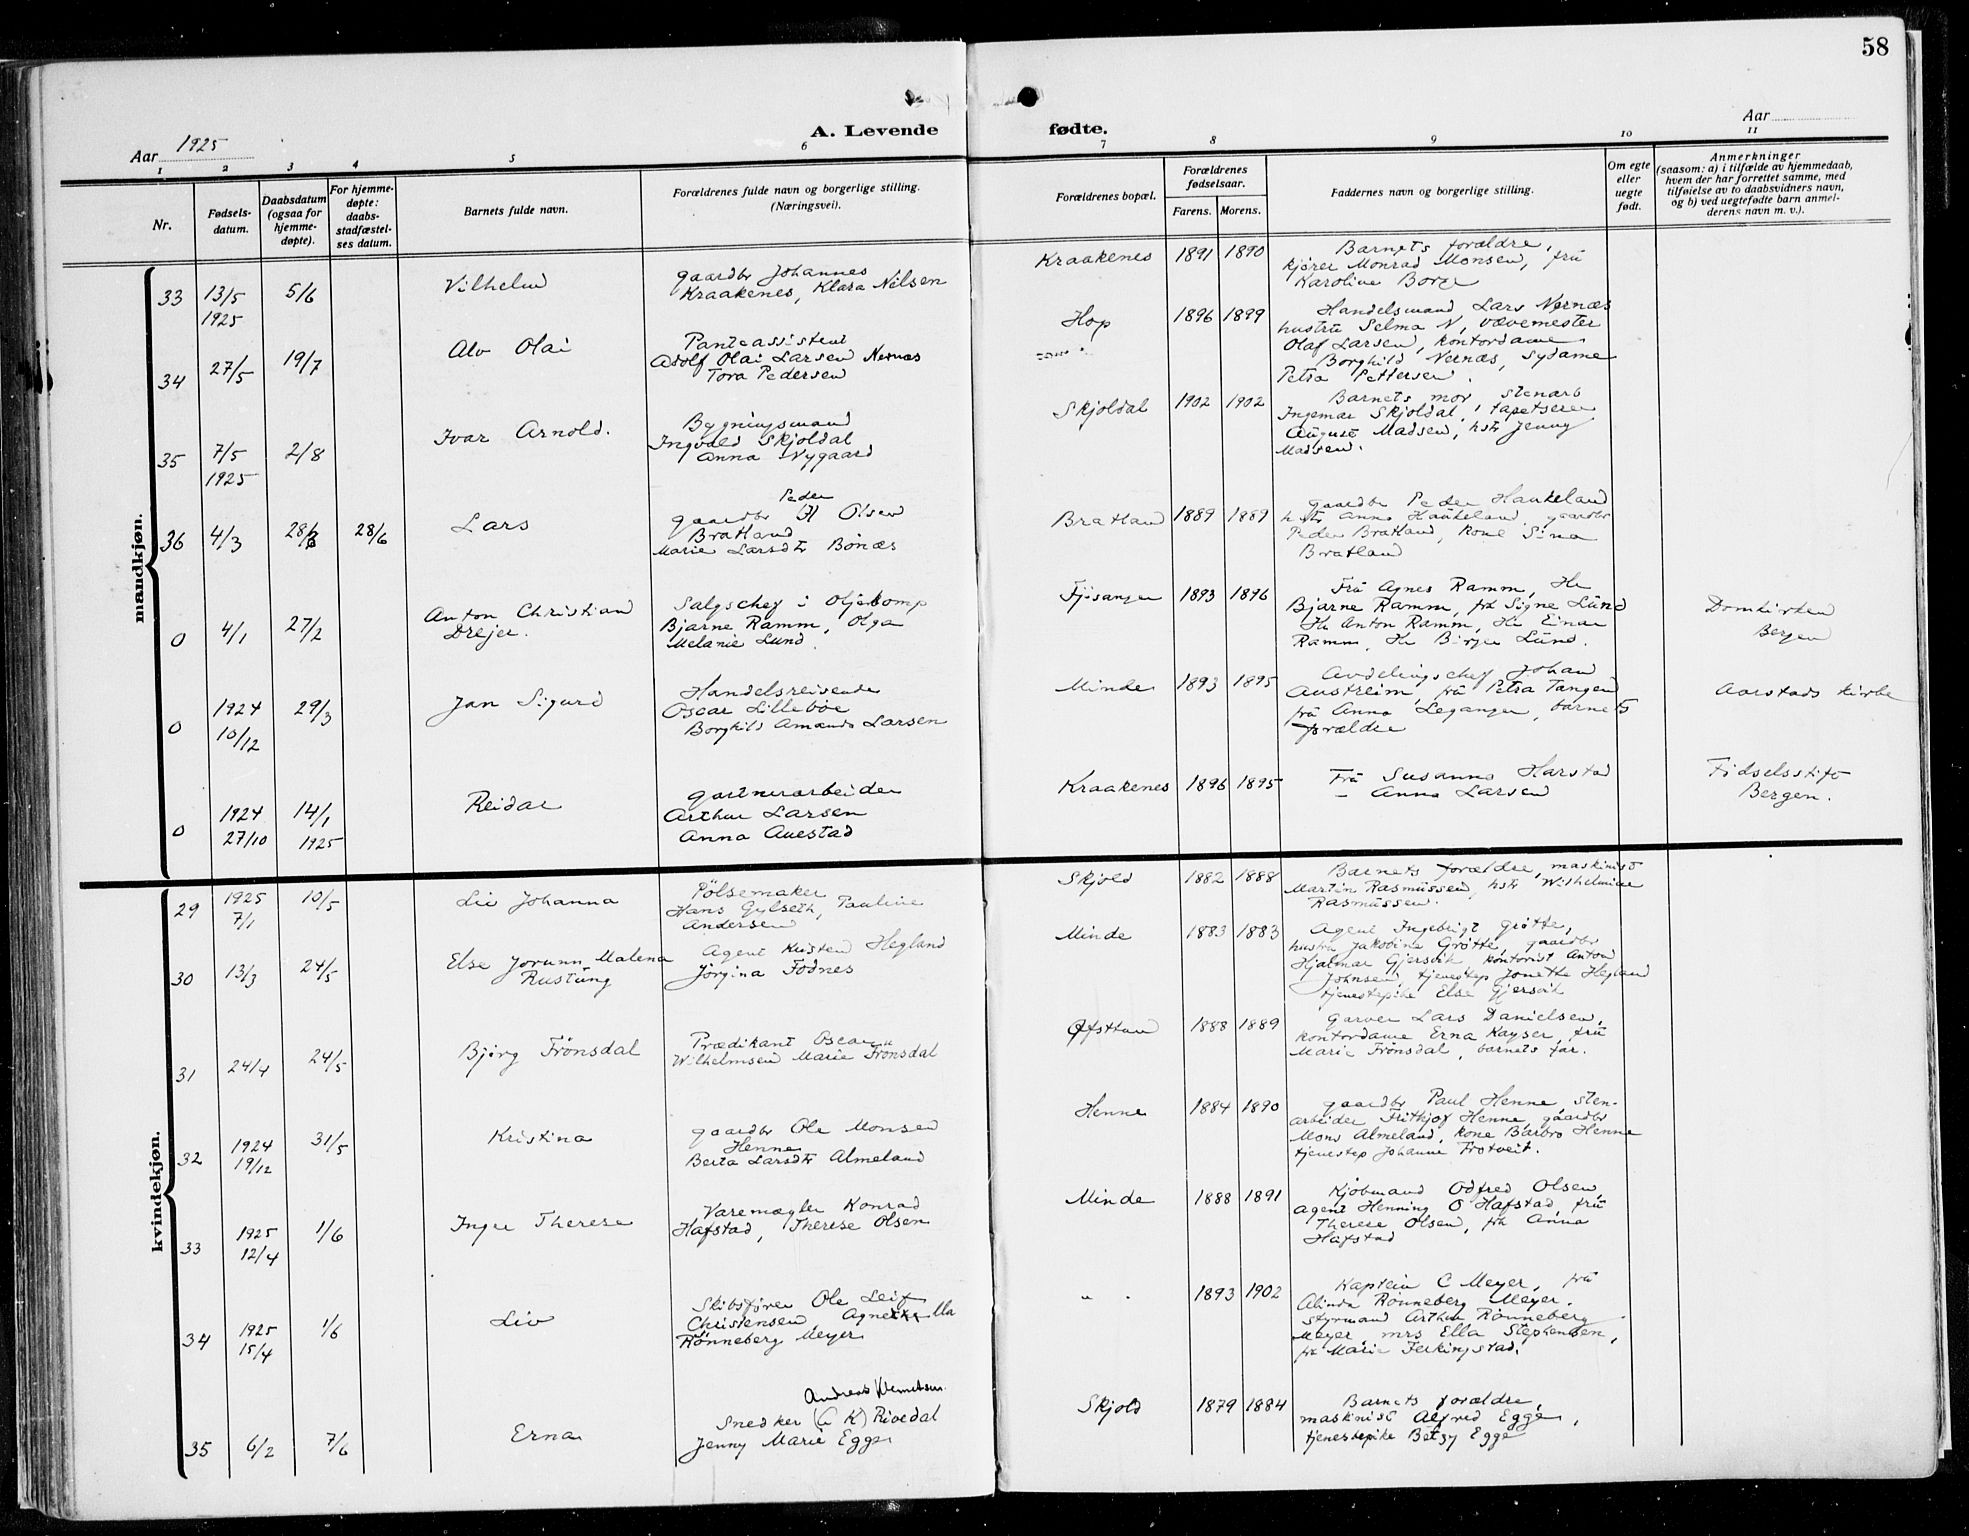 58
A. Levende
fødte.
Aar 1925
Aar
1 2 3 4 5 6 7 8 9 10 11
Nr.
Fødsels-
datum.
Daabsdatum
(ogsaa for
hjemme-
døpte).
For hjemme-
døpte:
daabs-
stadfæstel-
ses datum.
Barnets fulde navn.
Forældrenes fulde navn og borgerlige stilling.
(Næringsvei).
Forældrenes bopæl.
Forældrenes
fødselsaar.
Farens. Morens.
Faddernes navn og borgerlige stilling.
Om egte
eller
uegte
født.
Anmerkninger
(saasom: a) i tilfælde av hjemmedaab,
hvem der har forrettet samme, med
tilføielse av to daabsvidners navn,
og b) ved uegtefødte barn anmel-
derens navn m. v.).
mandkjøn.
33 13/5 1925 5/6 Vilhelm
gaardbr Johannes
Kraakenes, Klara Nilsen
Kraakenes 1891 1890
Barnets forældre,
kjører Monrad Monsen, frü
Karoline Borge
34 27/5 19/7 Alv Olai
Panteassistent
Adolf Olai Larsen Nernæs
Tora Pedersen
Hop 1896 1899
Handelsmand Lars Nernæs
hustru Selma N, vævemester
Olaf Larsen, kontordame
Borghild Nernæs, sydame
Petra Pettersen.
35 7/5 1925 2/8 Ivar Arnold.
Bygningsmand
Ingvald Skjoldal,
Anna Nygaard
Skjoldal 1902 1902
Barnets mor, stenarb
Ingemar Skjoldal, tapetserer
August Madsen, hstr Jenny
Madsen.
36 4/3 28/6 28/6 Lars
Peder
gaardbr Olsen
Bratland
Marie Larsdtr Bönæs
Bratland 1889 1889
gaardbr Peder Haukeland
hstr Anna Haukeland, gaardbr
Peder Bratland, kone Sina
Bratland
0 4/1 27/2 Anton Christian
Drejer.
Salgschef i Oljekomp
Bjarne Ramm, Olga
Melanie Lund.
Fjösanger 1893 1896
Frü Agnes Ramm, Hr
Bjarne Ramm, frk Signe Lünd
Hr Anton Ramm, Hr Einar
Ramm, Hr Birger Lünd.
Domkirken
Bergen
0 1924 10/12 29/3 Jan Sigurd
Handelsreisende
Oscar Lillebøe
Borghild Amanda Larsen
Minde 1893 1895
Avdelingschef Johan
Austreim, frü Petra Tangen
frü Anna Leganger, barnets
forældre
Aarstads kirke
0 1924 27/10 14/1 1925 Reidar
gartnerarbeider
Arthur Larsen
Anna Auestad
Kraakenes 1896 1895
Frü Susanna Harstad
— Anna Larsen
Fødselsstift
Bergen.
kvindekjøn.
29 1925 7/1 10/5 Liv Johanna
Pölsemaker
Hans Gylseth, Pauline
Andersen
Skjold 1882 1888
Barnets forældre, maskinist
Martin Rasmüssen, hstr Wilhelmine
Rasmüssen.
30 13/3 24/5 Else Jorunn Malena
Rustüng
Agent Kristen Hegland
Jörgina Fodnes
Minde 1883 1883
Agent Ingebrigt Grötte,
hustru Jakobina Grötte, gaardbr
Hjalmar Gjersvik kontorist Anton
Johnsen, tjenestep Jonette Hegland
tjenestepike Else Gjersvik
31 24/4 24/5 Bjørg Frönsdal
Prædikant Oscar
Wilhelmsen Marie Frönsdal
Øfsttun 1888 1889
Garver Lars Danielsen,
kontordame Erna Kayser, frü
Marie Frönsdal, barnets far.
32 1924 19/12 31/5 Kristina
gaardbr Ole Monsen
Henne
Berta Larsdtr Almeland
Henne 1884 1890
gaardbr Paul Henne sten-
arbeider Frithjof Henne gaardbr
Mons Almeland, kone Barbro Henne
tjenestep Johanne Trotveit.
33 1925 12/4 1/6 Inger Therese
Varemægler Konrad
Hafstad, Therese Olsen
Minde 1888 1891
Kjöbmand Odfred Olsen,
Agent Henning O Hafstad, frü
Therese Olsen, frk Anna
Hafstad
34 1925 15/4 1/6 Liv
Skibsfører Ole Leif
Christensen, Agnella
Rönneberg Meyer
" . 1893 1902
Kaptein C Meyer, frü
Alinda Rönneberg Meyer.
styrmand Arthur Rönneberg
Meyer, mrs Ella Stephensen,
frk Marie Ferkingstad.
35 6/2 7/6 Erna
Andreas Klemetsen
Snedker (A K) Rivedal
Jenny Marie Egge
Skjold 1879 1884
Barnets forældre,
maskinist Alfred Egge,
tjenestepike Betzy Egge